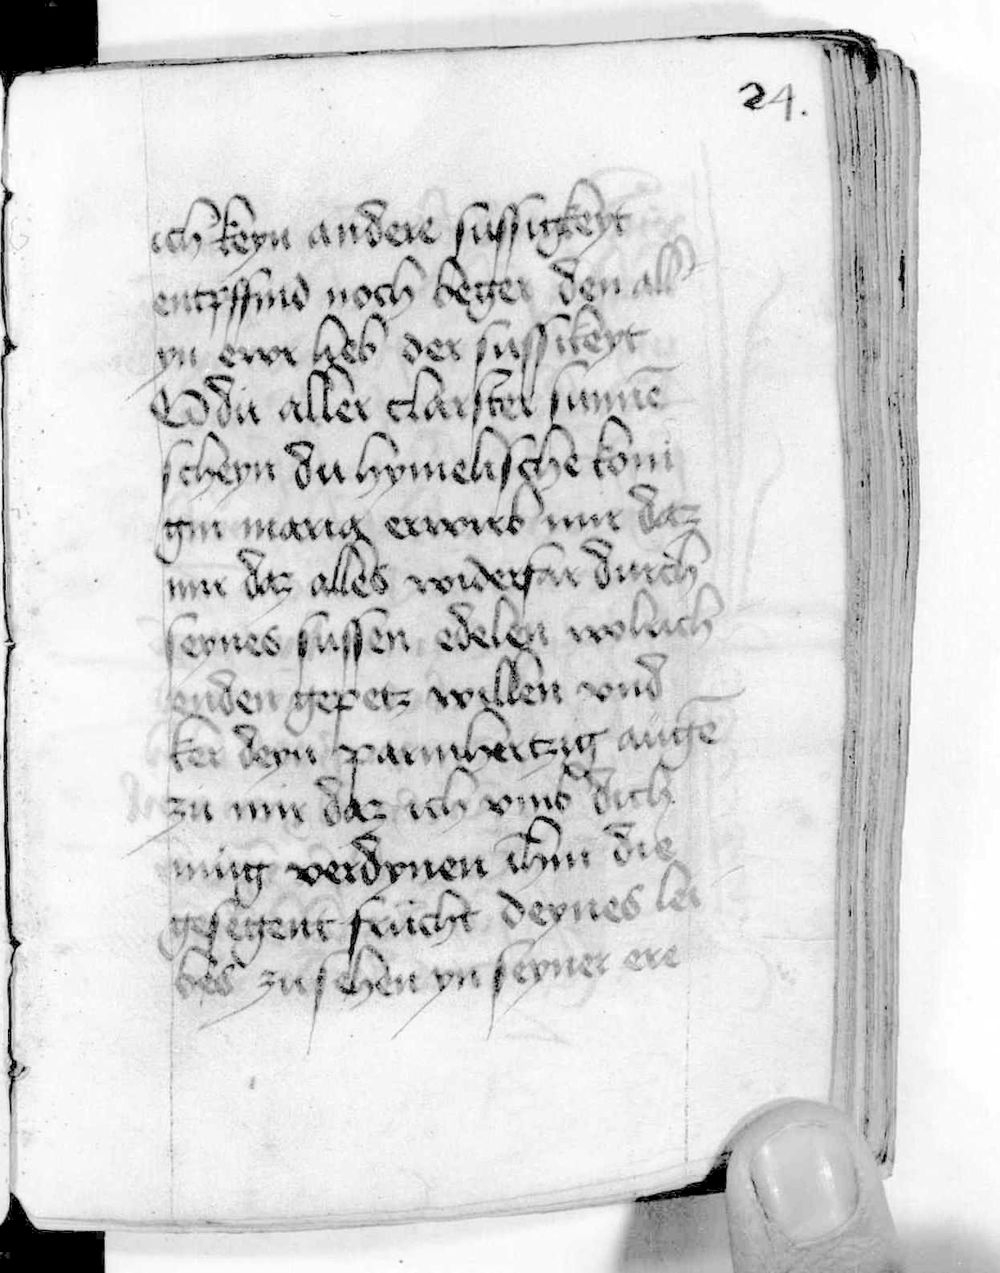 24.
ich keyn andere sussigkeyt
entpffind noch beger den all
yn ewr lieb der sussikeyt
O du aller clarster sunnē
scheyn du hymelische koni
gin maria erwirb mir daz
mir daz alles widerfar durch
seynes sussen edelen wolrich
enden gepetz willen vnd
ker deyn parmhertzig augē
zu mir daz ich vmb dich
mug verdynen ihm die
gesegent frucht deynes lei
bes zu sehen yn seyner ere